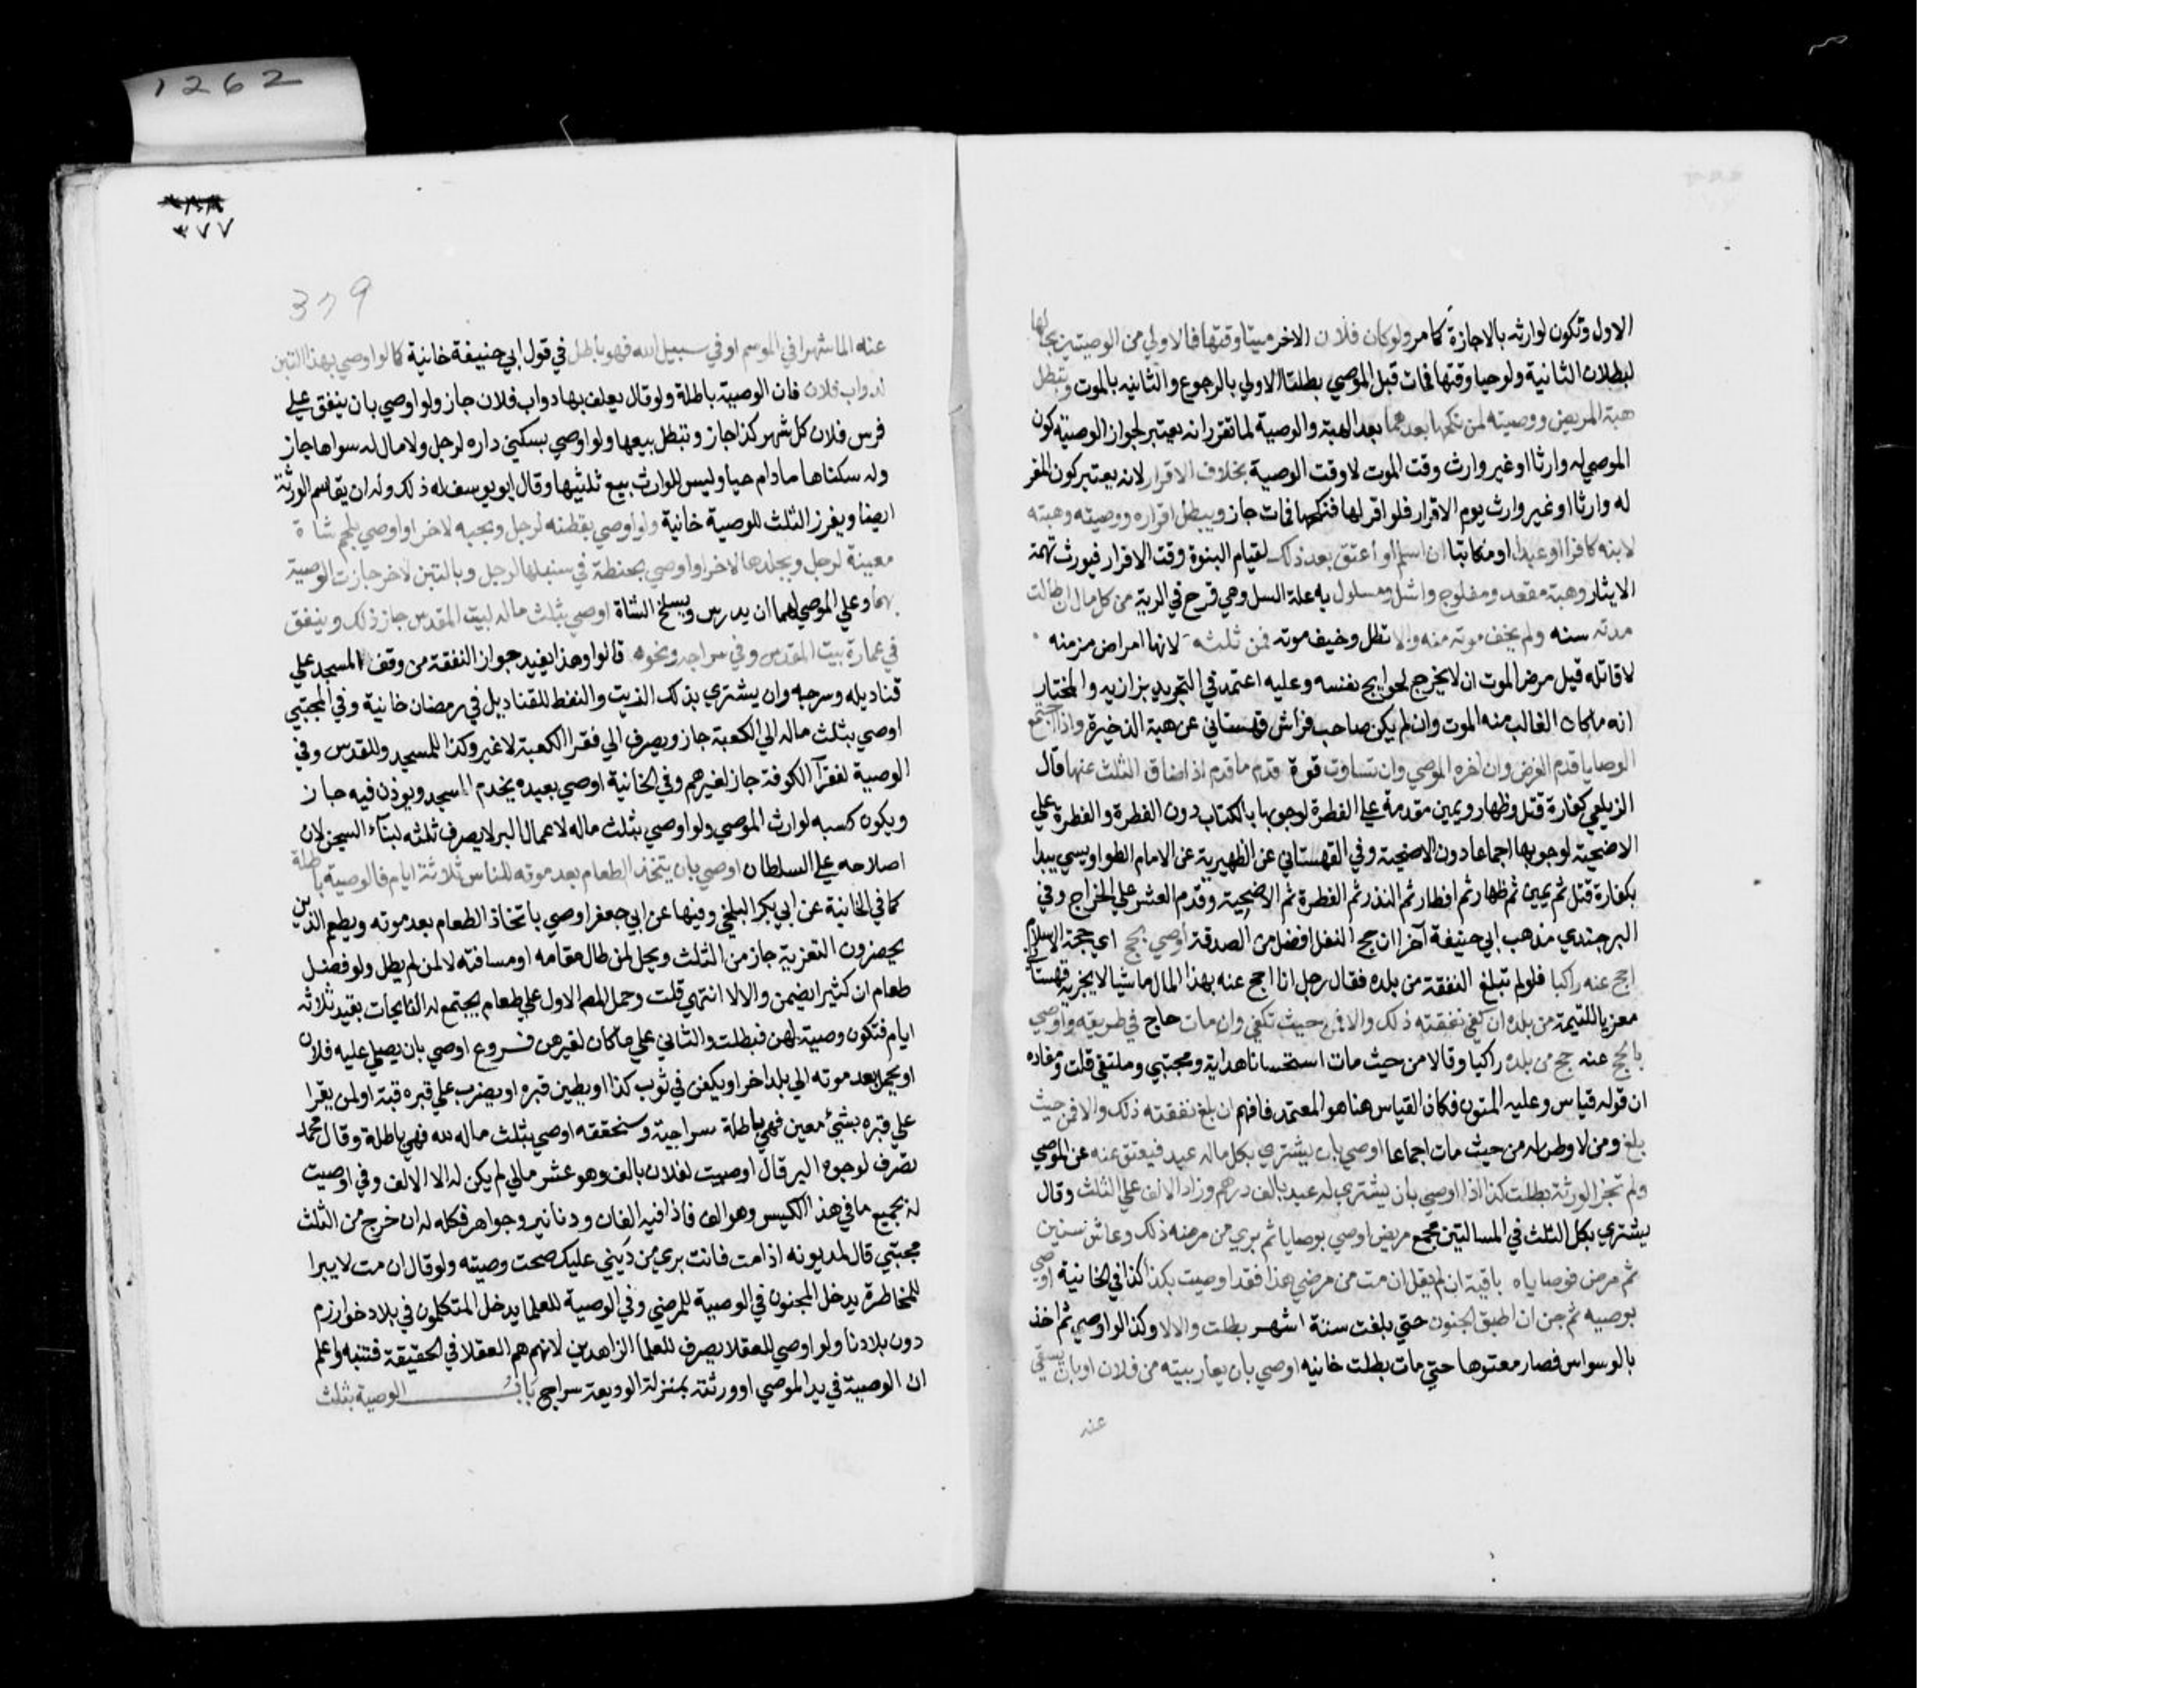 الاول وتكون لوارثه بالاجازة كما مر ولو كان فلان الاخر ميتا وقتها فالاولي من الوصيتين بحالها
لبطلان الثانية ولو حيا وقتها فمات قبل الموصي بطلتا الاولي بالرجوع والثانيه بالموت وتبطل
هبة المريض ووصيته لمن نكحها بعدهما بعد الهبة والوصية لما تقرر انه يعتبر لجواز الوصية كون
الموصي له وارثا او غير وارث وقت الموت لا وقت الوصية بخلاف الاقرار لانه يعتبر كون المقر
له وارثا او غير وارث يوم الاقرار فلو اقر لها فنكحها فمات جاز ويبطل اقراره ووصيته وهبته
لابنه كافرا او عبدا او مكاتبا ان اسلم او اعتق بعد ذلك لقيام البنوة وقت الاقرار فيورث تهمة
الايثار وهبة مقعد ومفلوج واشل ومسلول به علة السل وهي قرح في الرية من كل مال ان طالت
مدته سنه ولم يخف موته منه والا تطل وخيف موته فمن ثلثه لانها امراض مزمنه
لا قاتله قيل مرض الموت ان لا يخرج لحوايج نفسه وعليه اعتمد في التجريد بزازيه والمختار
انه ماكان الغالب منه الموت وان لم يكن صاحب فراش قهستاني عن هبة الذخيرة واذا اجتمع
الوصايا قدم الفرض وان اخره الموصي وان تساوت قوة قدم ما قدم اذا ضاق الثلث عنها قال
الزيلعي كفارة قتل وظهار ويمين مقدمة علي الفطرة لوجوبها بالكتاب دون الفطرة والفطرة علي
الاضحية لوجوبها اجماعا دون الاضحية وفي القهستاني عن الظهيرية عن الامام الطواويسي يبدا
بكفارة قتل ثم يمين ثم ظهار ثم افطار ثم النذر ثم الفطرة ثم الاضحية وقدم العشر علي الخراج وفي
البرجندي مذهب ابي حنيفة آخرا ان حج النفل افضل من الصدقة اوصي بحج اي حجة الاسلام
احج عنه راكبا فلو لم تبلغ النفقة من بلده فقال رجل انا احج عنه بهذا المال ماشيا لا يجزيه قهستاني
معزيا للتتيمة من بلده ان كفي نفقته ذلك والا فمن حيث تكفي وان مات حاج في طريقه واوصي
بالحج عنه حج من بلده راكبا وقالا من حيث مات استحسانا هداية ومجتبي وملتقي قلت ومفاده
ان قوله قياس وعليه المتون فكان القياس هنا هو المعتمد فافهم ان بلغ نفقته ذلك والا فمن حيث
بلغ ومن لا وطن له من حيث مات اجماعا اوصي بان يشتري بكل ماله عبد فيعتق عنه عن الموصي
ولم تجز الورثة بطلت كذا اذا اوصي بان يشتري له عبد بالف درهم وزاد الالف علي الثلث وقال
يشتري بكل الثلث في المسالتين مجمع مريض اوصي بوصايا ثم بري من مرضه ذلك وعاش سنين
ثم مرض فوصاياه باقية ان لم يقل ان مت من مرضي هذا فقد اوصيت بكذا كذا في الخانية اوصي
بوصيه ثم جن ان اطبق الجنون حتي بلغت ستة اشهر بطلت والا لا وكذا لو اوصي ثم اخذ
بالوسواس فصار معتوها حتي مات بطلت خانيه اوصي بان يعار بيته من فلان او بان يسقي
عنه
1262
٣٧٧
379
عنه الما شهرا في الموسم او في سبيل الله فهو باطل في قول ابي حنيفة خانية كما لو اوصي بهذا التبن
لدواب فلان فان الوصية باطلة ولو قال يعلف بها دواب فلان جاز ولو اوصي بان ينفق علي
فرس فلان كل شهر كذا جاز وتبطل ببيعها ولو اوصي بسكني داره لرجل ولا مال له سواها جاز
وله سكناها مادام حيا وليس للوارث بيع ثلثيها وقال ابو يوسف له ذلك وله ان يقاسم الورثة
ايضا ويفرز الثلث للوصية خانية ولو اوصي بقطنه لرجل وبحبه لاخر او اوصي بلحم شاة
معينة لرجل وبجلدها لاخر او اوصي بحنطة في سنبلها لرجل وبالتبن لاخر جازت الوصية
بهما وعلي الموصي لهما ان يدرس ويسلخ الشاة اوصي بثلث ماله لبيت المقدس جاز ذلك وينفق
في عمارة بيت المقدس وفي سراجه ونحوه قالوا وهذا يفيد جواز النفقة من وقف المسجد علي
قناديله وسرجه وان يشتري بذلك الزيت والنفط للقناديل في رمضان خانية وفي المجتبي
اوصي بثلث ماله الي الكعبة جاز ويصرف الي فقرا الكعبة لا غير وكذا للمسجد وللقدس وفي
الوصية لفقرآ الكوفة جاز لغيرهم وفي الخانية اوصي بعبده يخدم المسجد ويوذن فيه جاز
ويكون كسبه لوارث الموصي ولو اوصي بثلث ماله لاعمال البر لا يصرف ثلثه لبناء السجن لان
اصلاحه علي السلطان اوصي بان يتخذ الطعام بعد موته للناس ثلاثة ايام فالوصية باطلة
كما في الخانية عن ابي بكر البلخي وفيها عن ابي جعفر اوصي باتخاذ الطعام بعد موته ويطعم الذين
يحضرون التعزية جاز من الثلث ويحل لمن طال مقامه او مسافته لا لمن لم يطل ولو فضل
طعام ان كثيرا يضمن والا لا انتهي قلت وحمل المص الاول علي طعام يجتمع له النائحات بقيد ثلاثة
ايام فتكون وصية لهن فبطلت والثاني علي ماكان لغيرهن فروع اوصي بان يصلي عليه فلان
او يحمل بعد موته الي بلد اخر او يكفن في ثوب كذا او يطين قبره او يضرب علي قبره قبة او لمن يقرا
علي قبره بشيئ معين فهي باطلة سراجية وسنحققه اوصي بثلث ماله لله فهي باطلة وقال محمد
تصرف لوجوه البر قال اوصيت لفلان بالف وهو عشر مالي لم يكن له الا الالف وفي اوصيت
له بجميع ما في هذا الكيس وهو الف فاذا فيه الفان ودنانير وجواهر فكله له ان خرج من الثلث
مجتبي قال لمديونه اذا مت فانت بري من دَيني عليك صحت وصيته ولو قال ان مت لا يبرا
للمخاطرة يدخل المجنون في الوصية للمرضي وفي الوصية للعلما يدخل المتكلمون في بلاد خوارزم
دون بلادنا ولو اوصي للعقلا يصرف للعلما الزاهدين لانهم هم العقلا في الحقيقة فتنبه واعلم
ان الوصية في يد الموصي او ورثته بمنزلة الوديعة سراج باب الوصية بثلث